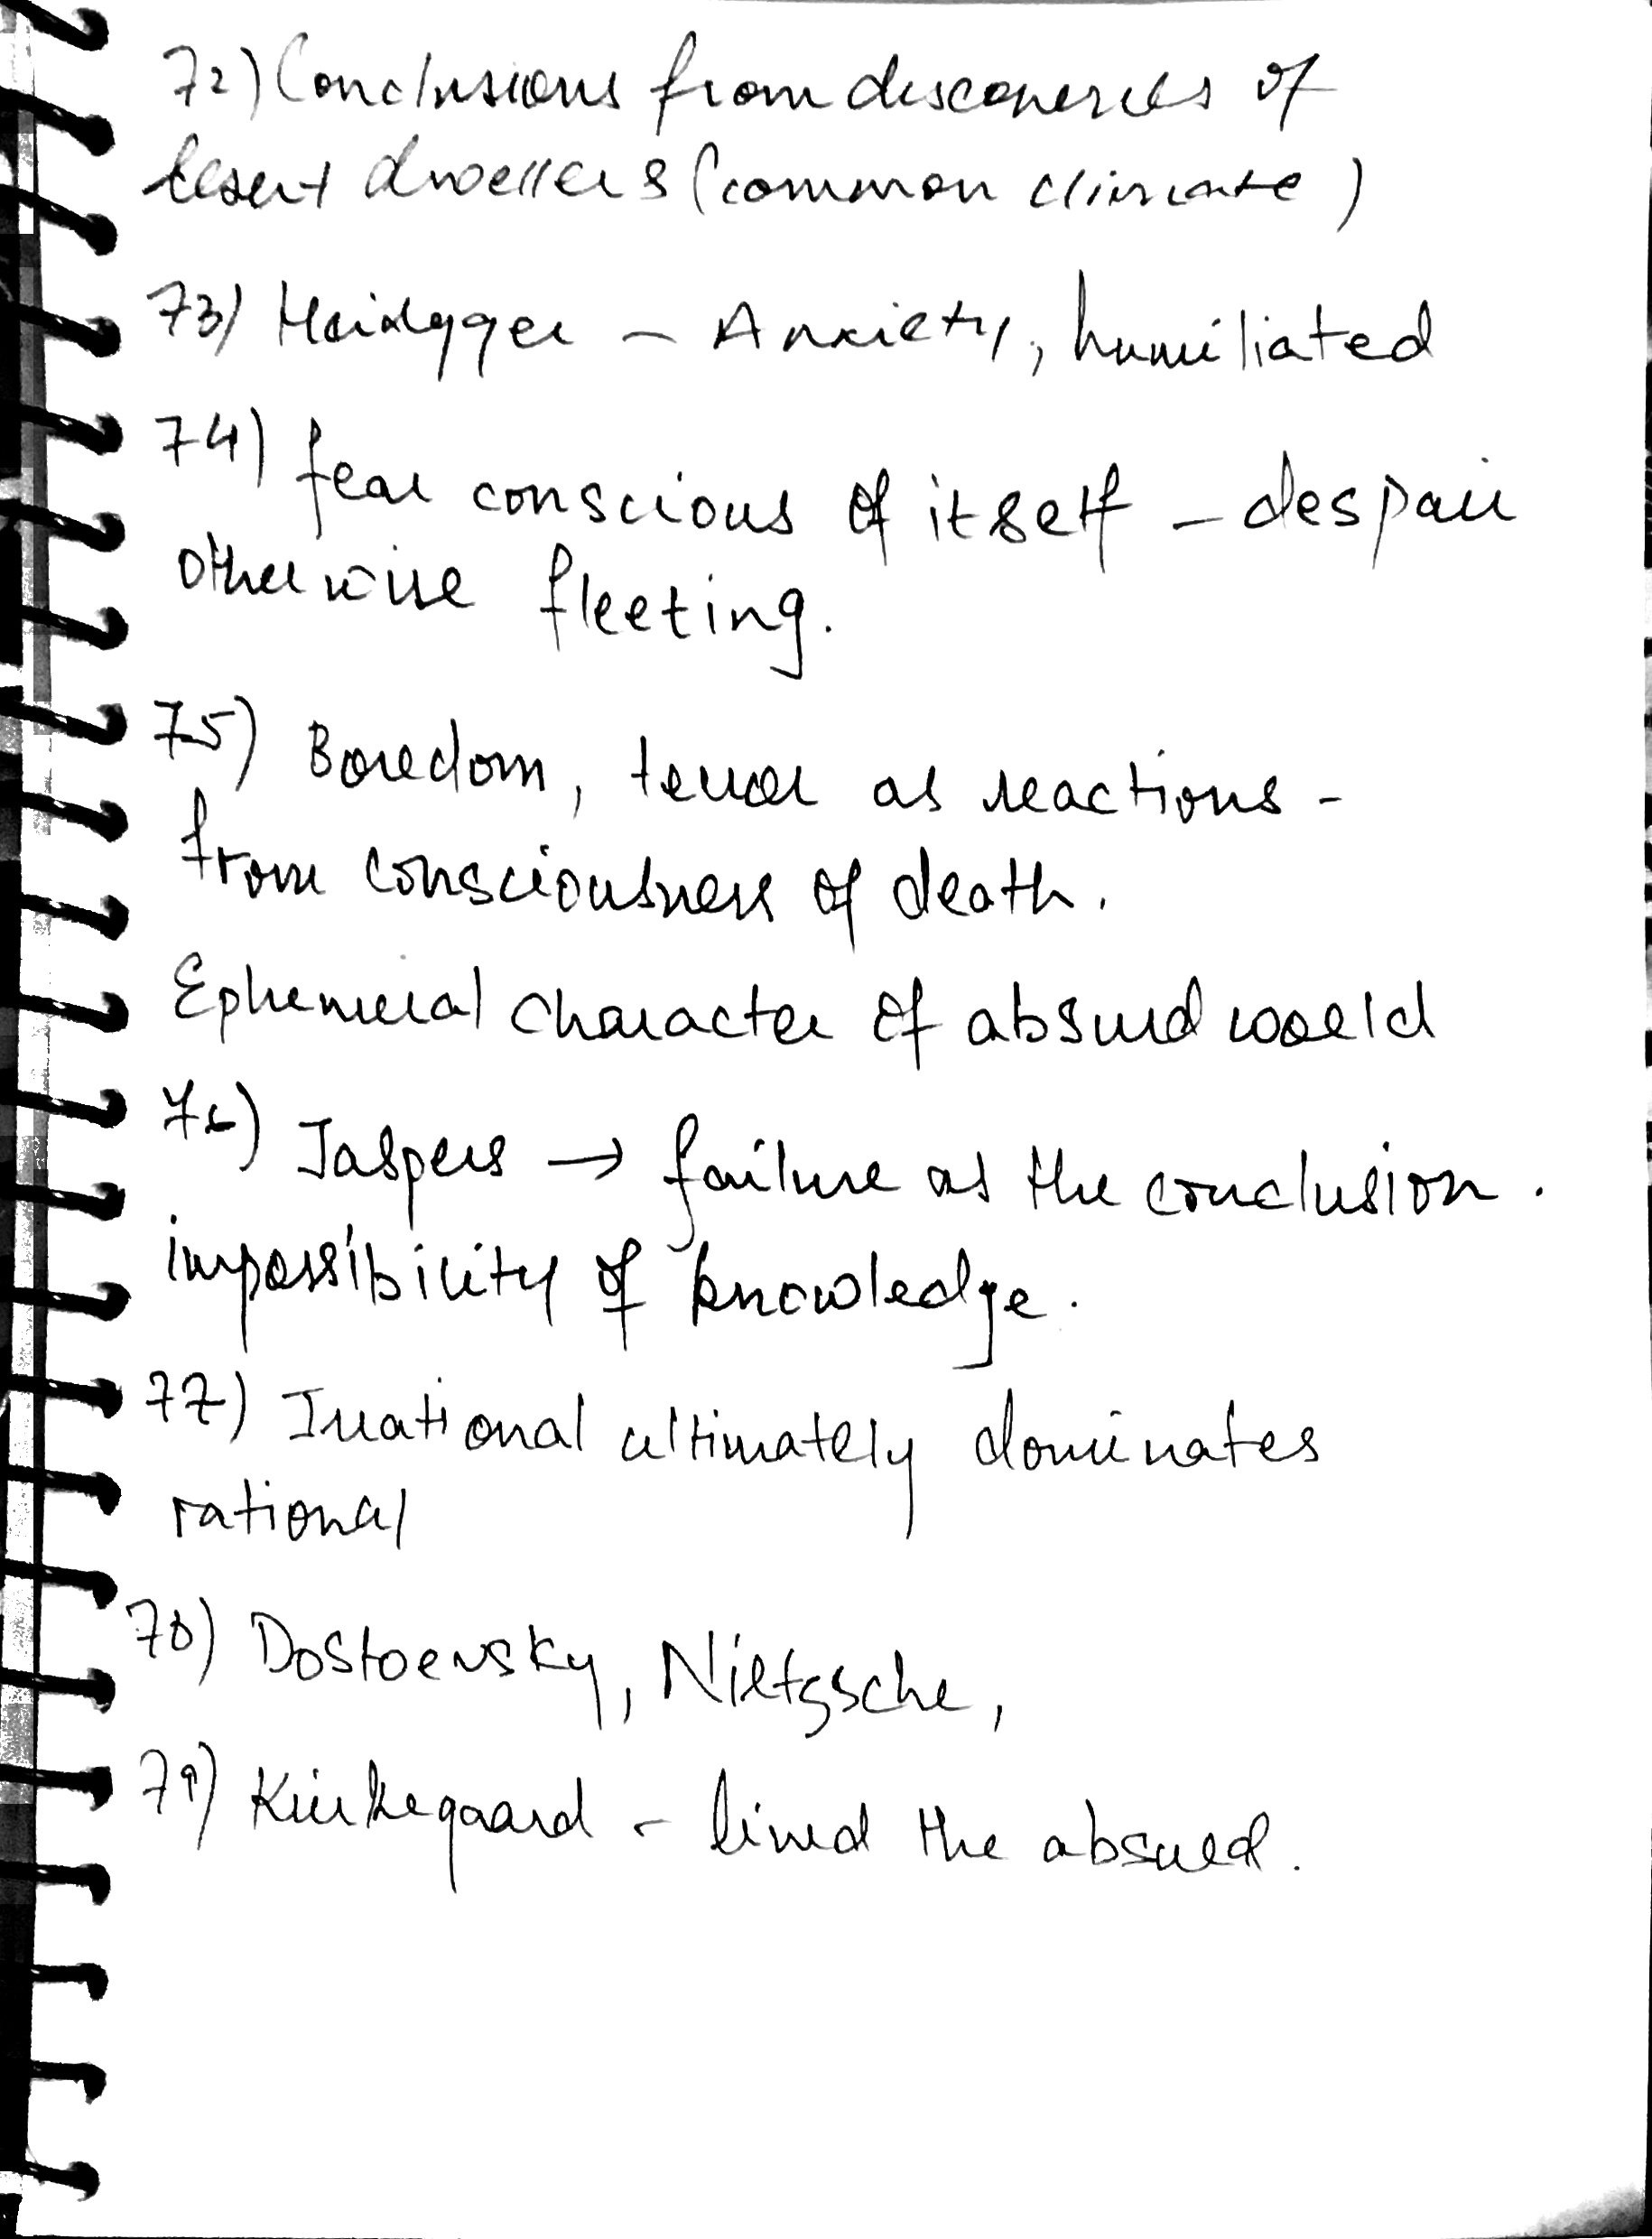 72) Conclusions from discoveries of
desert dwellers (common climate)
73) Heidgger - Anxiety, humiliated
74) fear conscious of itself - despair
otherwise fleeting.
75) Boredom, terror as reactions -
from consciousness of death.
Ephemeral character of absurd world
76) Jaspers → failure as the conclusion.
impossibility of knowledge.
77) Irrational ultimately dominates
rational
78) Dostoevsky, Nietzsche,
79) Kierkegaard - lived the absurd.